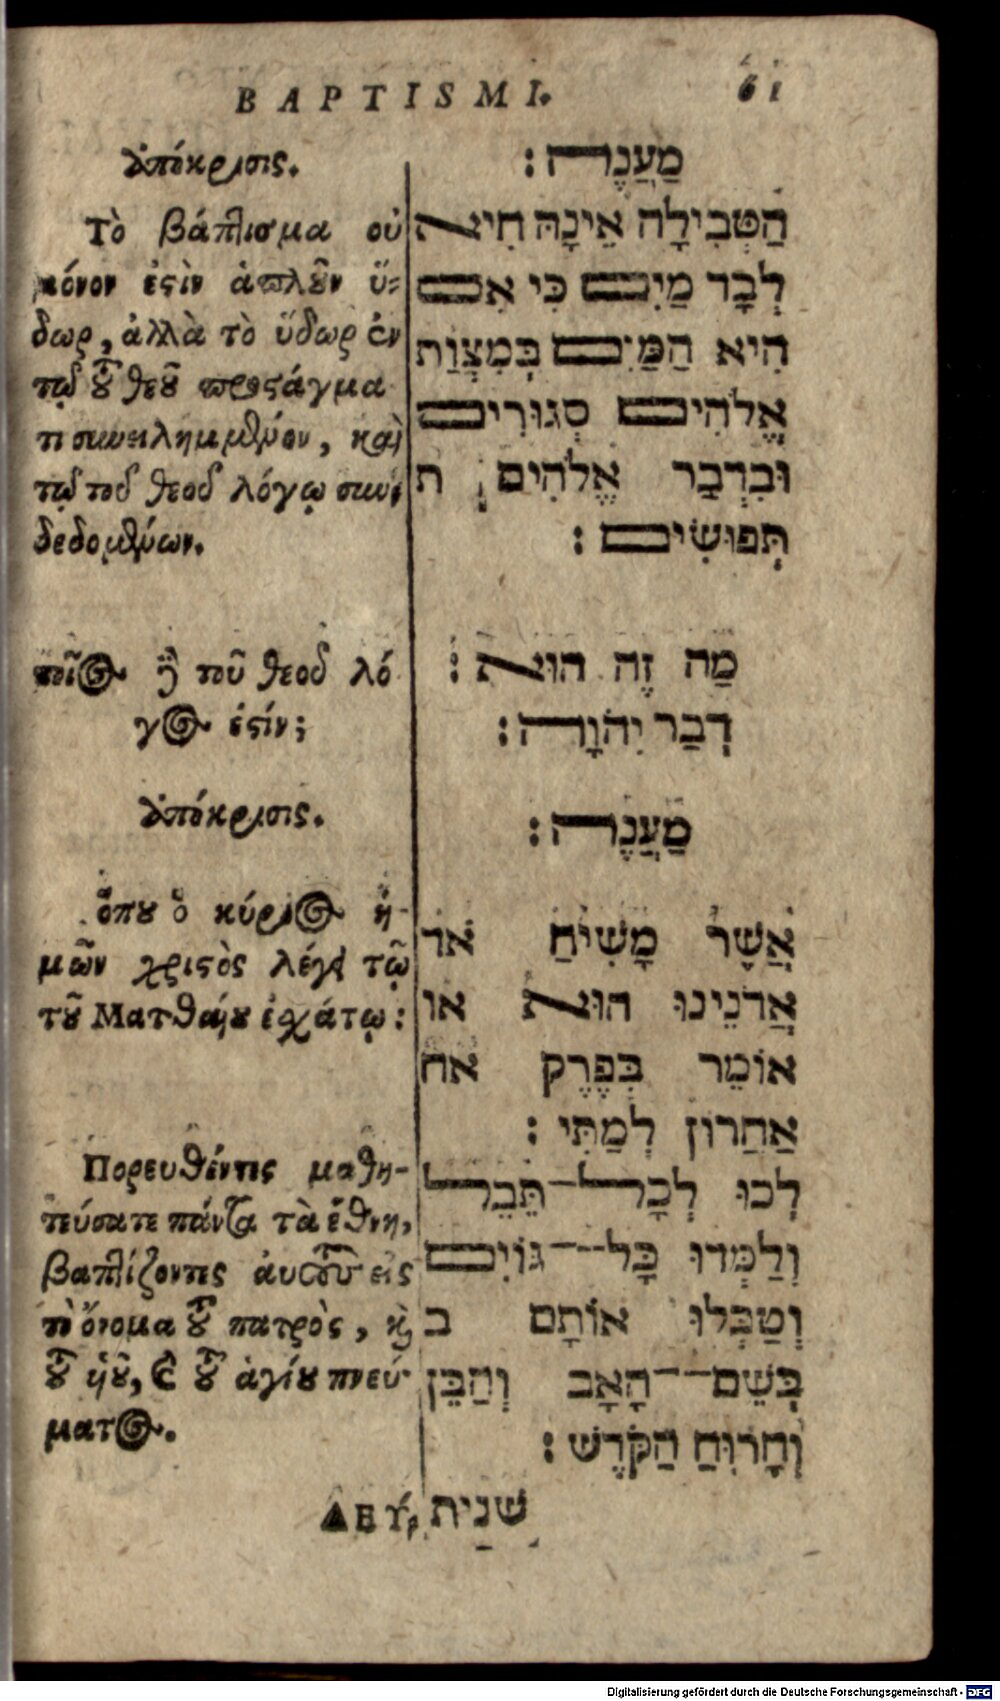 BAPTISMI. 61
ἀπόκρισις.
Τὸ βάπτισμα οὐ
μόνον ἐστὶν ἁπλοῦν ὕ-
δωρ, ἀλλὰ τὸ ὕδωρ ἐν
τῷ τοῦ θεοῦ προστάγμα
τι συνειλημμένον, καὶ
τῷ τοῦ θεοῦ λόγῳ συν
δεδομένων.
ποῖος δὲ τοῦ θεοῦ λό
γος ἐστίν;
ἀπόκρισις.
ὅπου ὁ κύριος ἡ-
μῶν χριστὸς λέγει τῷ
τοῦ Ματθαίου ἐσχάτῳ:
Πορευθέντες μαθη-
τεύσατε πάντα τὰ ἔθνη,
βαπτίζοντες αὐτοὺς εἰς
τὸ ὄνομα τοῦ πατρὸς, καὶ
τοῦ ἡοῦ, καὶ τοῦ ἁγίου πνεύ-
ματος.
מַעֲנֶה:
הַטְּבִילָה אֵינָהּ הִיא
לְבָד מַיִם כִּי אִם
הִיא הַמַּיִם בְּמִצְוַת
אֱלֹהִים סְגוּרִים
וּבִדְבַר אֱלֹהִים ת
תְּפוּשִׂים:
מַה זֶה הוּא:
דְבַר יְהֹוָה:
מַעֲנֶה:
אֲשֶׁר מָשִׁיחַ אד
אֲדֹנֵינוּ הוּא או
אוֹמֵר בְּפֶרֶק אח
אַחֲרוֹן לְמַתִּי:
לְכוּ לְכָל־תֵּבֵל
וְלַמְּדוּ כָּל־גּוֹיִם
וְטַבְּלוּ אוֹתָם ב
בְּשֵׁם־הָאָב וְהַבֵּן
וְהָרוּחַ הַקֹּדֶשׁ:
ΔΕΥ, שֵׁנִית
Digitalisierung gefördert durch die Deutsche Forschungsgemeinschaft - DFG